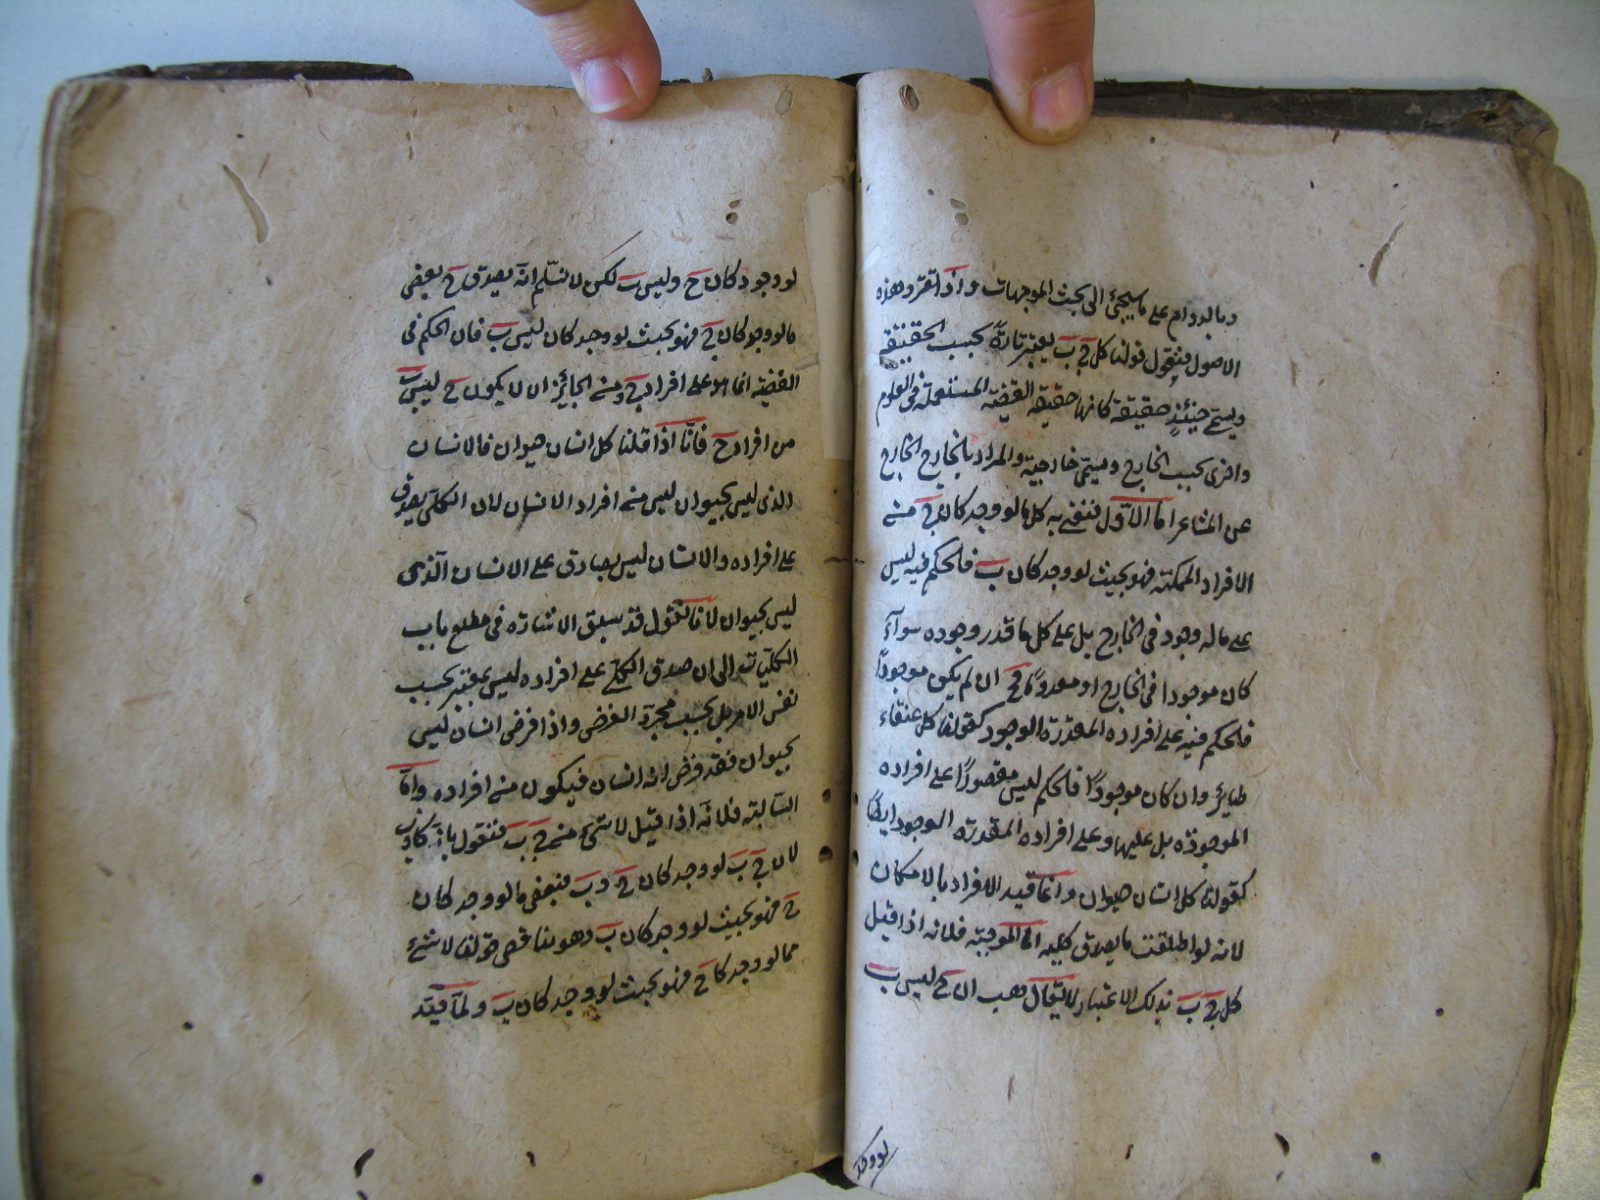 وبالدوام على ما سيجئ الى بحث الموجهات واذا تقرر هذه
الاصول فنقول قولنا كل ج ب يعتبر تارة بحسب الحقيقة
ويسمى حينئذ حقيقة كانها حقيقة القضية المستعملة فى العلوم
واخرى بحسب الخارج ويسمى خارجية والمراد بالخارج الخارج
عن المشاعر اما الاول فنعنى به كل ما لو وجد كان ج من
الافراد الممكنة فهو بحيث لو وجد كان ب فالحكم فيه ليس
على ما له وجود فى الخارج بل على كل ما قدر وجوده سواء
كان موجودا فى الخارج او معدوما فح ان لم يكن موجودا
فالحكم فيه على افراده المقدرة الوجود كقولنا كل عنقاء
طاير وان كان موجودا فالحكم ليس مقصورا على افراده
الموجودة بل عليها وعلى افراده المقدرة الوجود ايضا
كقولنا كل انسان حيوان وانما قيد الافراد بالامكان
لانه لو اطلقت ما يصدق كلية اما الموجبة فلانه اذا قيل
كل ج ب بذلك الاعتبار لا يقال هب ان ج ليس ب
لو وجد
لو وجود كان ج وليس ب لكن لا نسلم انه يصدق ح بعض
ما لو وجد كان ج فهو بحيث لو وجد كان ليس ب فان الحكم فى
القضية انما هو على افراد ج ومن الجايز ان لا يكون ج ليس ب
من افراد ج فانا اذا قلنا كل انسان حيوان فالانسان
الذى ليس بحيوان ليس من افراد الانسان لان الكلى يصدق
على افراده والانسان ليس بصادق على الانسان الذى
ليس بحيوان لانا نقول قد سبق الاشارة فى مطلع باب
الكليات الى ان صدق الكلى على افراده ليس بمعتبر بحسب
نفس الامر بل بحسب مجرد الفرض واذا فرض انسان ليس
بحيوان فقد فرض انه انسان فيكون من افراده واما
السالبة فلانه اذا قيل لا شئ من ج ب فنقول بانه كاذب
لان ج ب لو وجد كان ج و ب فبعض ما لو وجد كان
ج فهو بحيث لو وجد كان ب وهو يناقض قولنا لا شئ
مما لو وجد كان ج فهو بحيث لو وجد كان ب ولما قيد